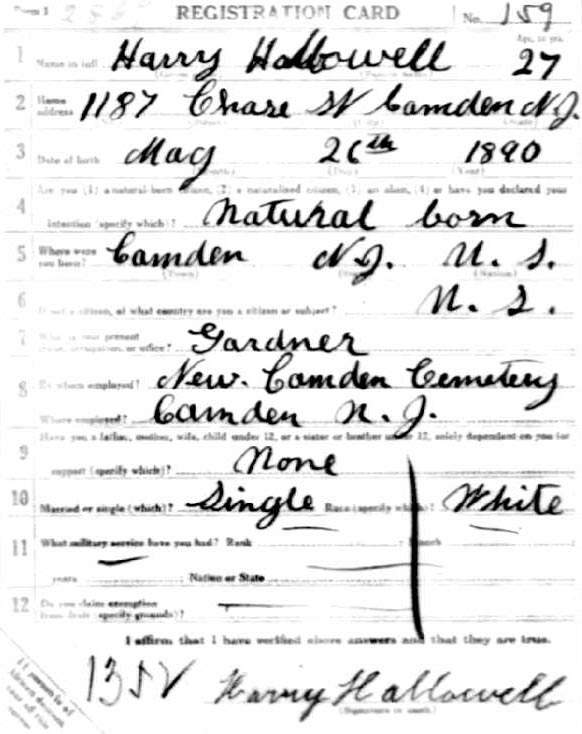 Form 1 REGISTRATION CARD No. 159
Age, in yrs.
1 Name in full Harry Hallowell 27
2 Home address 1187 Chase St Camden N.J.
3 Date of birth May 26th 1890
(Month) (Day) (Year)
Are you (1) a natural-born citizen, (2) a naturalized citizen, (3) an alien, (4) or have you declared your
4 intention (specify which)? Natural born
5 Where were you born? Camden N.J. U. S.
(Town) (State) (Nation)
6 If not a citizen, of what country are you a citizen or subject? U. S.
7 What is your present trade, occupation, or office? Gardner
8 By whom employed? New. Camden Cemetery
Where employed? Camden N. J.
Have you a father, mother, wife, child under 12, or a sister or brother under 12, solely dependent on you for
9 support (specify which)? None
10 Married or single (which)? Single Race (specify which)? White
11 What military service have you had? Rank ; branch
years ; Nation or State
12 Do you claim exemption from draft (specify grounds)?
I affirm that I have verified above answers and that they are true.
Harry Hallowell
(Signature or mark)